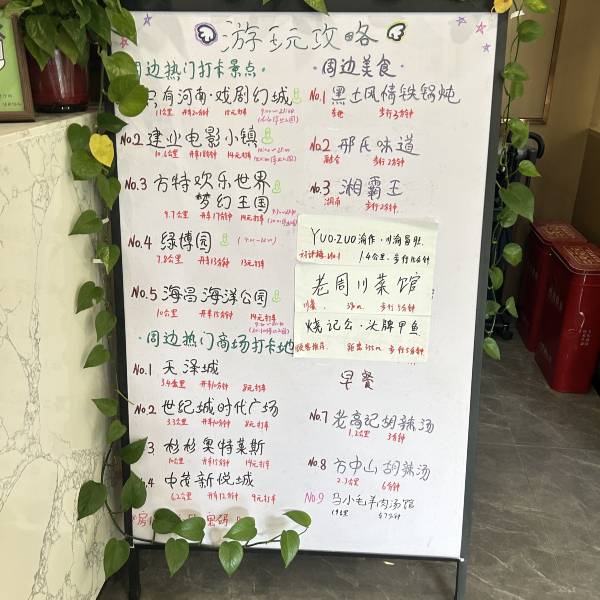 游玩攻略
周边热门打卡景点·
只有河南·戏剧幻城
11公里 开车20分钟 15元打车
No.2 建业电影小镇
10.6公里 开车18分钟 14元打车
No.3 方特欢乐世界
梦幻王国
9.7公里 开车17分钟 14元打车
No.4 绿博园
7.8公里 开车13分钟 13元打车
No.5 海昌海洋公园
10公里 开车15分钟 14元打车
·周边热门商场打卡地
No.1 天泽城
3.4公里 开车10分钟 8元打车
No.2 世纪城时代广场
3.3公里 开车10分钟 8元打车
3 杉杉奥特莱斯
10公里 开车15分钟 14元打车
.4 中茂新悦城
6.2公里 开车12分钟 9元打车
·周边美食·
No.1 黑土风情铁锅炖
东北 步行3分钟
No.2 邢氏味道
融合 步行2分钟
No.3 湘霸王
湖南 步行2分钟
YUO·ZUO渝作·川渝冒肚
1.4公里
老周川菜馆
川菜 步行5分钟
烧记公·大牌甲鱼
步行5分钟
早餐
No.7 老高记胡辣汤
1.2公里 3分钟
No.8 方中山胡辣汤
2.3公里 6分钟
No.9 马小毛羊肉汤馆